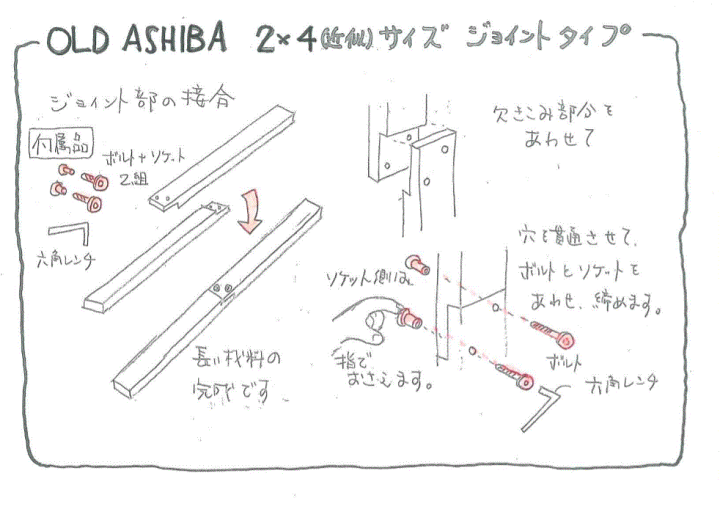 OLD ASHIBA 2×4(近似)サイズ ジョイントタイプ
ジョイント部の接合
付属品
ボルト+ソケット
2組
六角レンチ
長い材料の
完成です
欠きこみ部分を
あわせて
穴を貫通させて、
ボルトとソケットを
あわせ、締めます。
ソケット側は、
指で
おさえます。
ボルト
六角レンチ